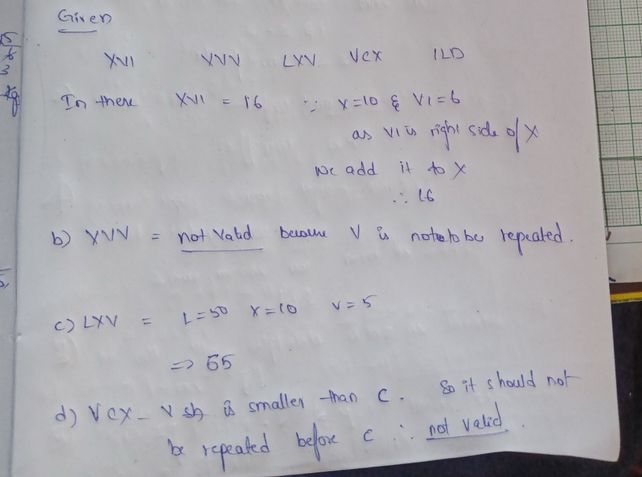 Given
XVI XVVV LXV VCX ILD
In there XVI = 16 ∵ X=10 & VI=6
as VI is right side of X
We add it to X
∴ 16
b) XVVV = not Valid because V is not to be repeated.
c) LXV = L=50 X=10 V=5
=> 65
d) VCX - V is smaller than C. So it should not
be repeated before C ∴ not valid.